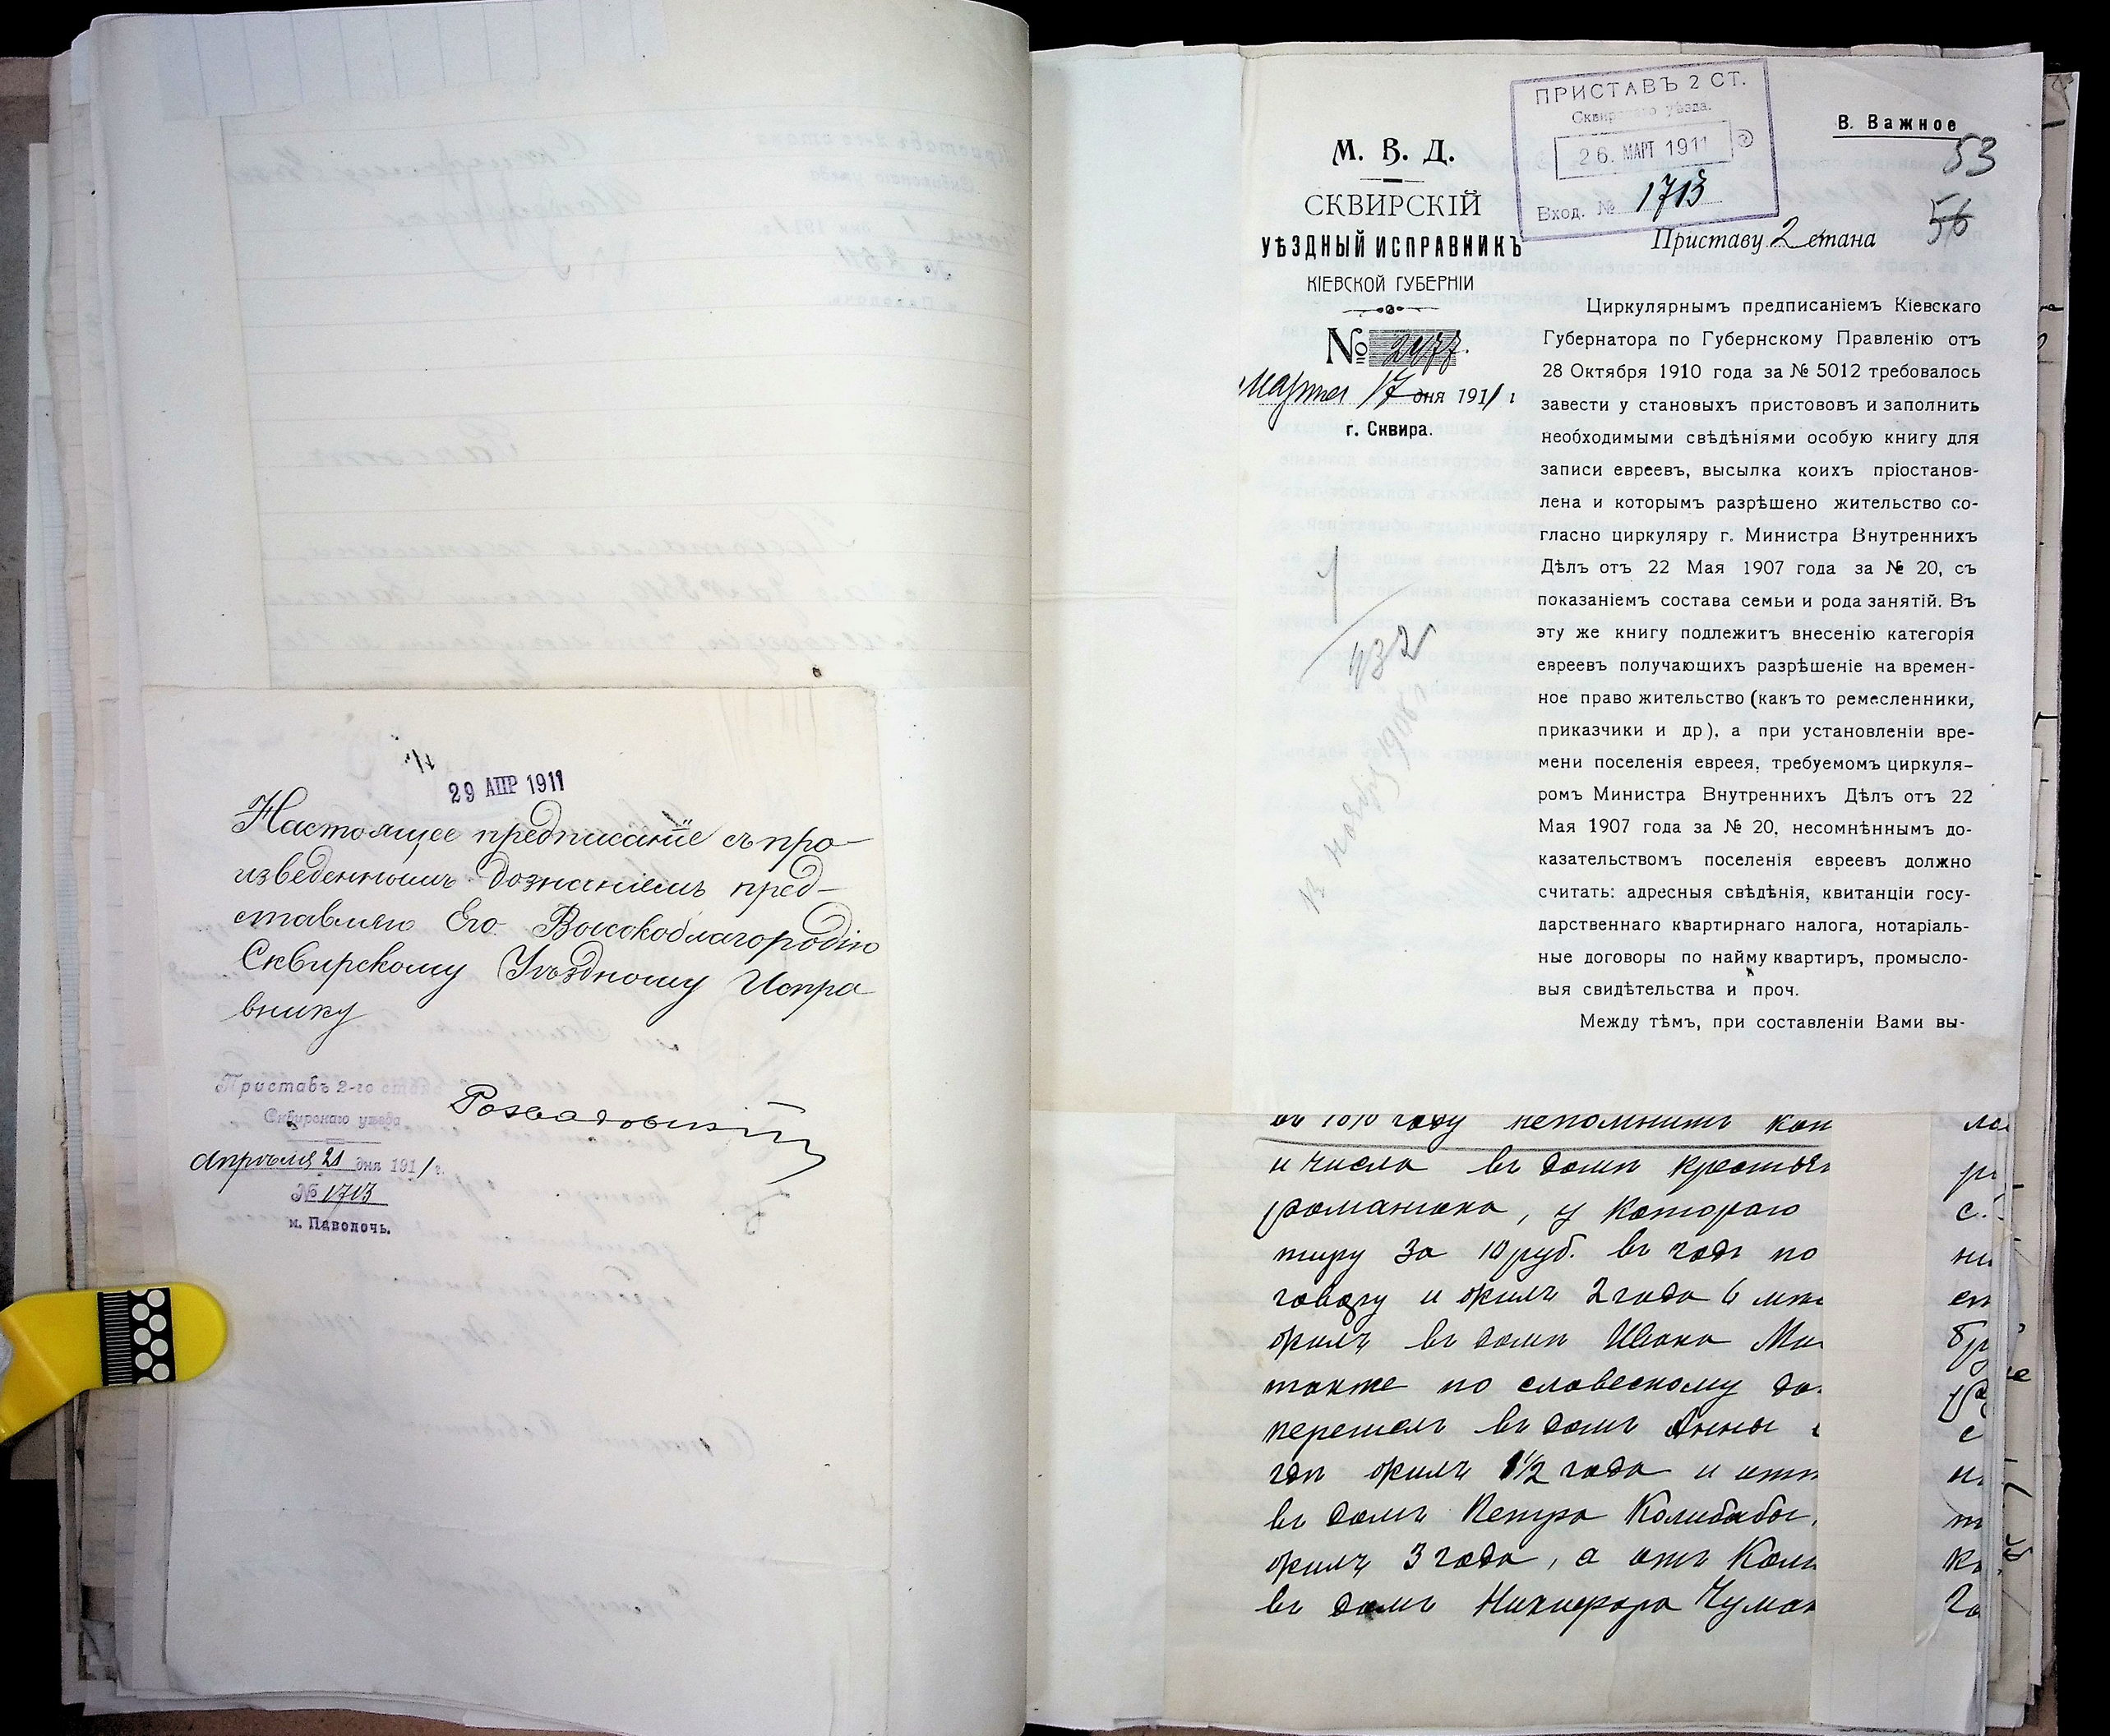 29 АПР 1911
Настоящее предписаніе съ про-
изведеннымъ дознаніемъ пред-
ставляю Его Высокоблагородію
Сквирскому Уѣздному Испра
внику
Приставъ 2-го стана
Сквирскаго уѣзда
Апрѣля 21 дня 1911 г.
№ 1713
м. Паволочь.
ПРИСТАВЪ 2 СТ.
Сквирскаго уѣзда.
26. МАРТ 1911
Вход. № 1713
В. Важное
53
56
М. В. Д.
СКВИРСКІЙ
УѢЗДНЫЙ ИСПРАВНИКЪ
КІЕВСКОЙ ГУБЕРНІИ
№ 2477.
Марта 17 дня 1911 г
г. Сквира.
1
432
Приставу 2 стана
Циркулярнымъ предписаніемъ Кіевскаго
Губернатора по Губернскому Правленію отъ
28 Октября 1910 года за № 5012 требовалось
завести у становыхъ пристововъ и заполнить
необходимыми свѣдѣніями особую книгу для
записи евреевъ, высылка коихъ пріостанов-
лена и которымъ разрѣшено жительство со-
гласно циркуляру г. Министра Внутреннихъ
Дѣлъ отъ 22 Мая 1907 года за № 20, съ
показаніемъ состава семьи и рода занятій. Въ
эту же книгу подлежитъ внесенію категорія
евреевъ получающихъ разрѣшеніе на времен-
ное право жительство (какъ то ремесленники,
приказчики и др), а при установленіи вре-
мени поселенія еврея, требуемомъ циркуля-
ромъ Министра Внутреннихъ Дѣлъ отъ 22
Мая 1907 года за № 20, несомнѣннымъ до-
казательствомъ поселенія евреевъ должно
считать: адресныя свѣдѣнія, квитанціи госу-
дарственнаго квартирнаго налога, нотаріаль-
ные договоры по найму квартиръ, промысло-
выя свидѣтельства и проч.
Между тѣмъ, при составленіи Вами вы-
году непомнитъ
и числа въ домѣ
романюка, у котораго
тиру за 10 руб. въ годъ по
говору и жилъ 2 года 6
жилъ въ домѣ Ивана
также по словесному до
перешелъ въ домъ Анны
гдѣ жилъ 1 1/2 года и
въ домъ Петра Колибабы,
жилъ 3 года, а отъ
въ домъ Никифора